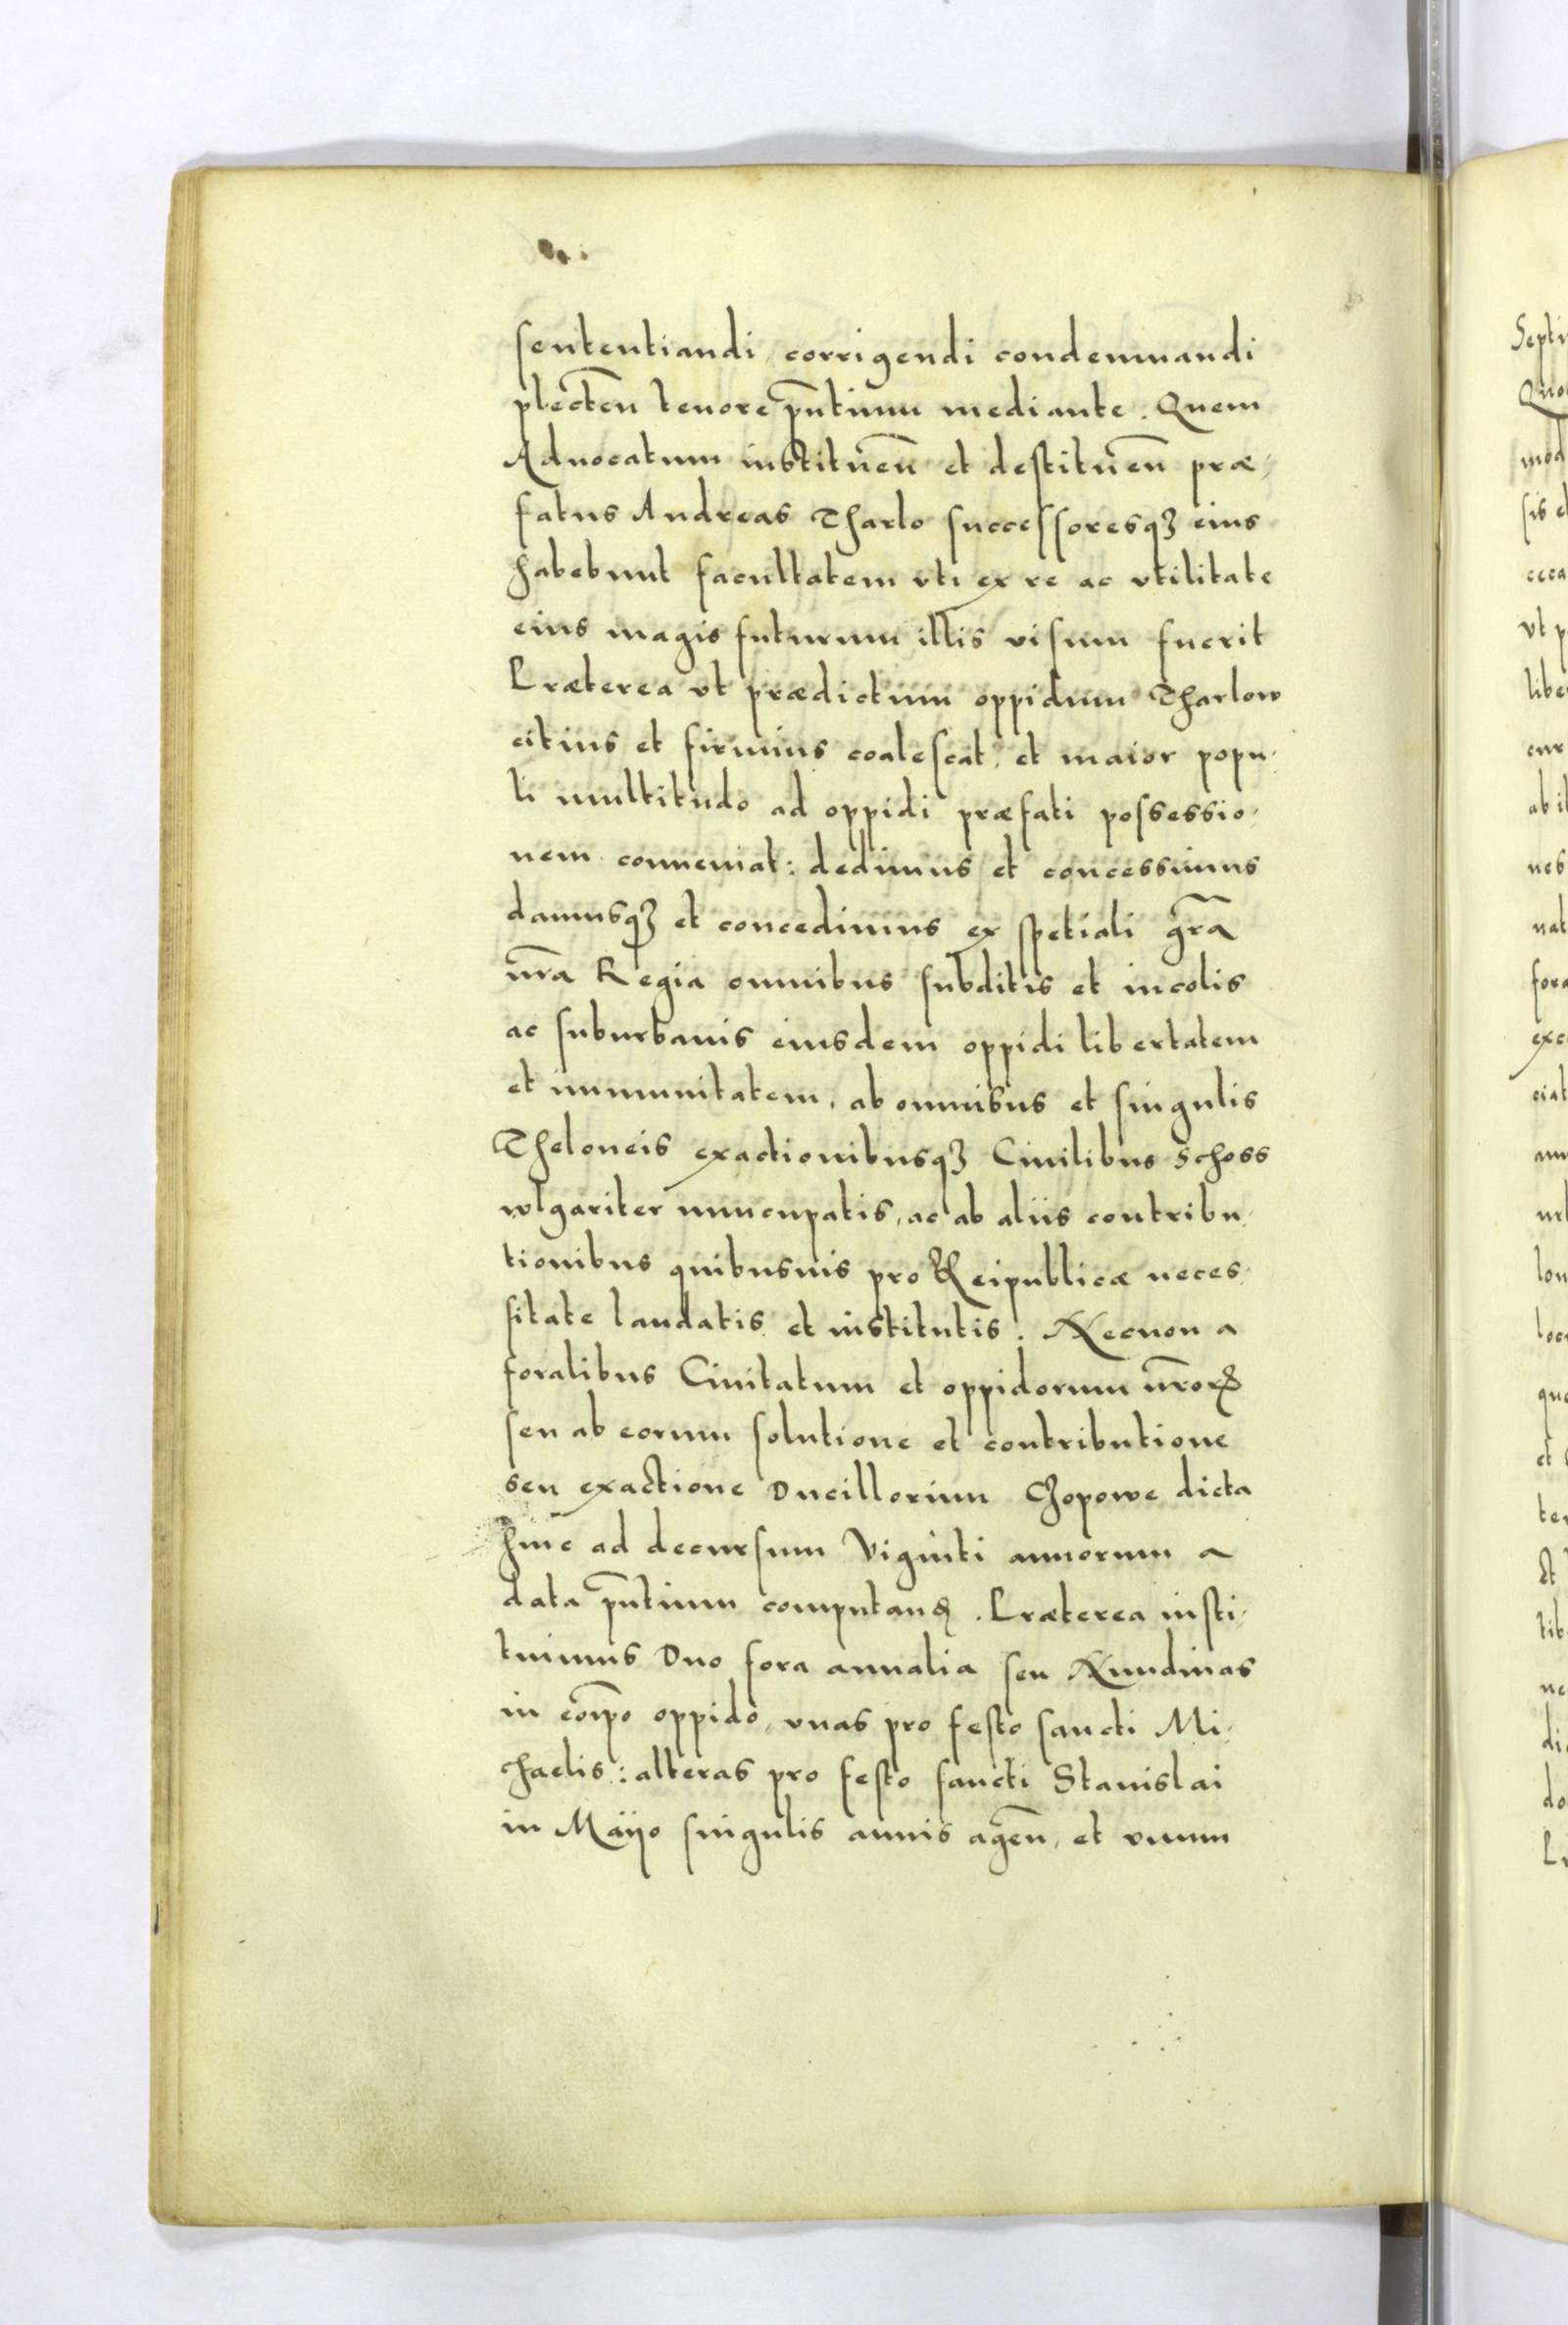 sententiandi corrigendi condemnandi
plecten̄ tenore pn̄tium mediante. Quem
Aduocatum instituen̄ et destituen̄ præ-
fatus Andreas Tharlo successoresqꝫ eius
habebunt facultatem vti ex re ac vtilitate
eius magis futurum illis visum fuerit
Præterea vt prædictum oppidum Tharlow
citius et firmius coalescat, et maior popu-
li multitudo ad oppidi præfati possessio-
nem conueniat: dedimus et concessimus
damusqꝫ et concedimus ex spetiali gr̄a
nr̄a Regia omnibus subditis et incolis
ac suburbanis eiusdem oppidi libertatem
et immunitatem, ab omnibus et singulis
Theloneis exactionibusqꝫ Ciuilibus Schoss
wlgariter nuncupatis, ac ab aliis contribu-
tionibus quibusuis pro Reipublicæ neces-
sitate laudatis et institutis. Necnon a
foralibus Ciuitatum et oppidorum nr̄orꝝ
seu ab eorum solutione et contributione
seu exactione Ducillorum Czopowe dicta
hinc ad decursum Viginti annorum a
data pn̄tium computanꝺ. Præterea insti-
tuimus Duo fora annalia seu Nundinas
in eod̄em oppido, vnas pro festo sancti Mi-
chaelis: alteras pro festo sancti Stanislai
in Maÿo singulis annis agen̄, et vnum
Septi
Quo
mod
sis e
ceca
vt p
libe
cur
ab il
nes
nat
fora
exc
ciat
lon
loc
qua
et
te
Et
tib
ne
di
do